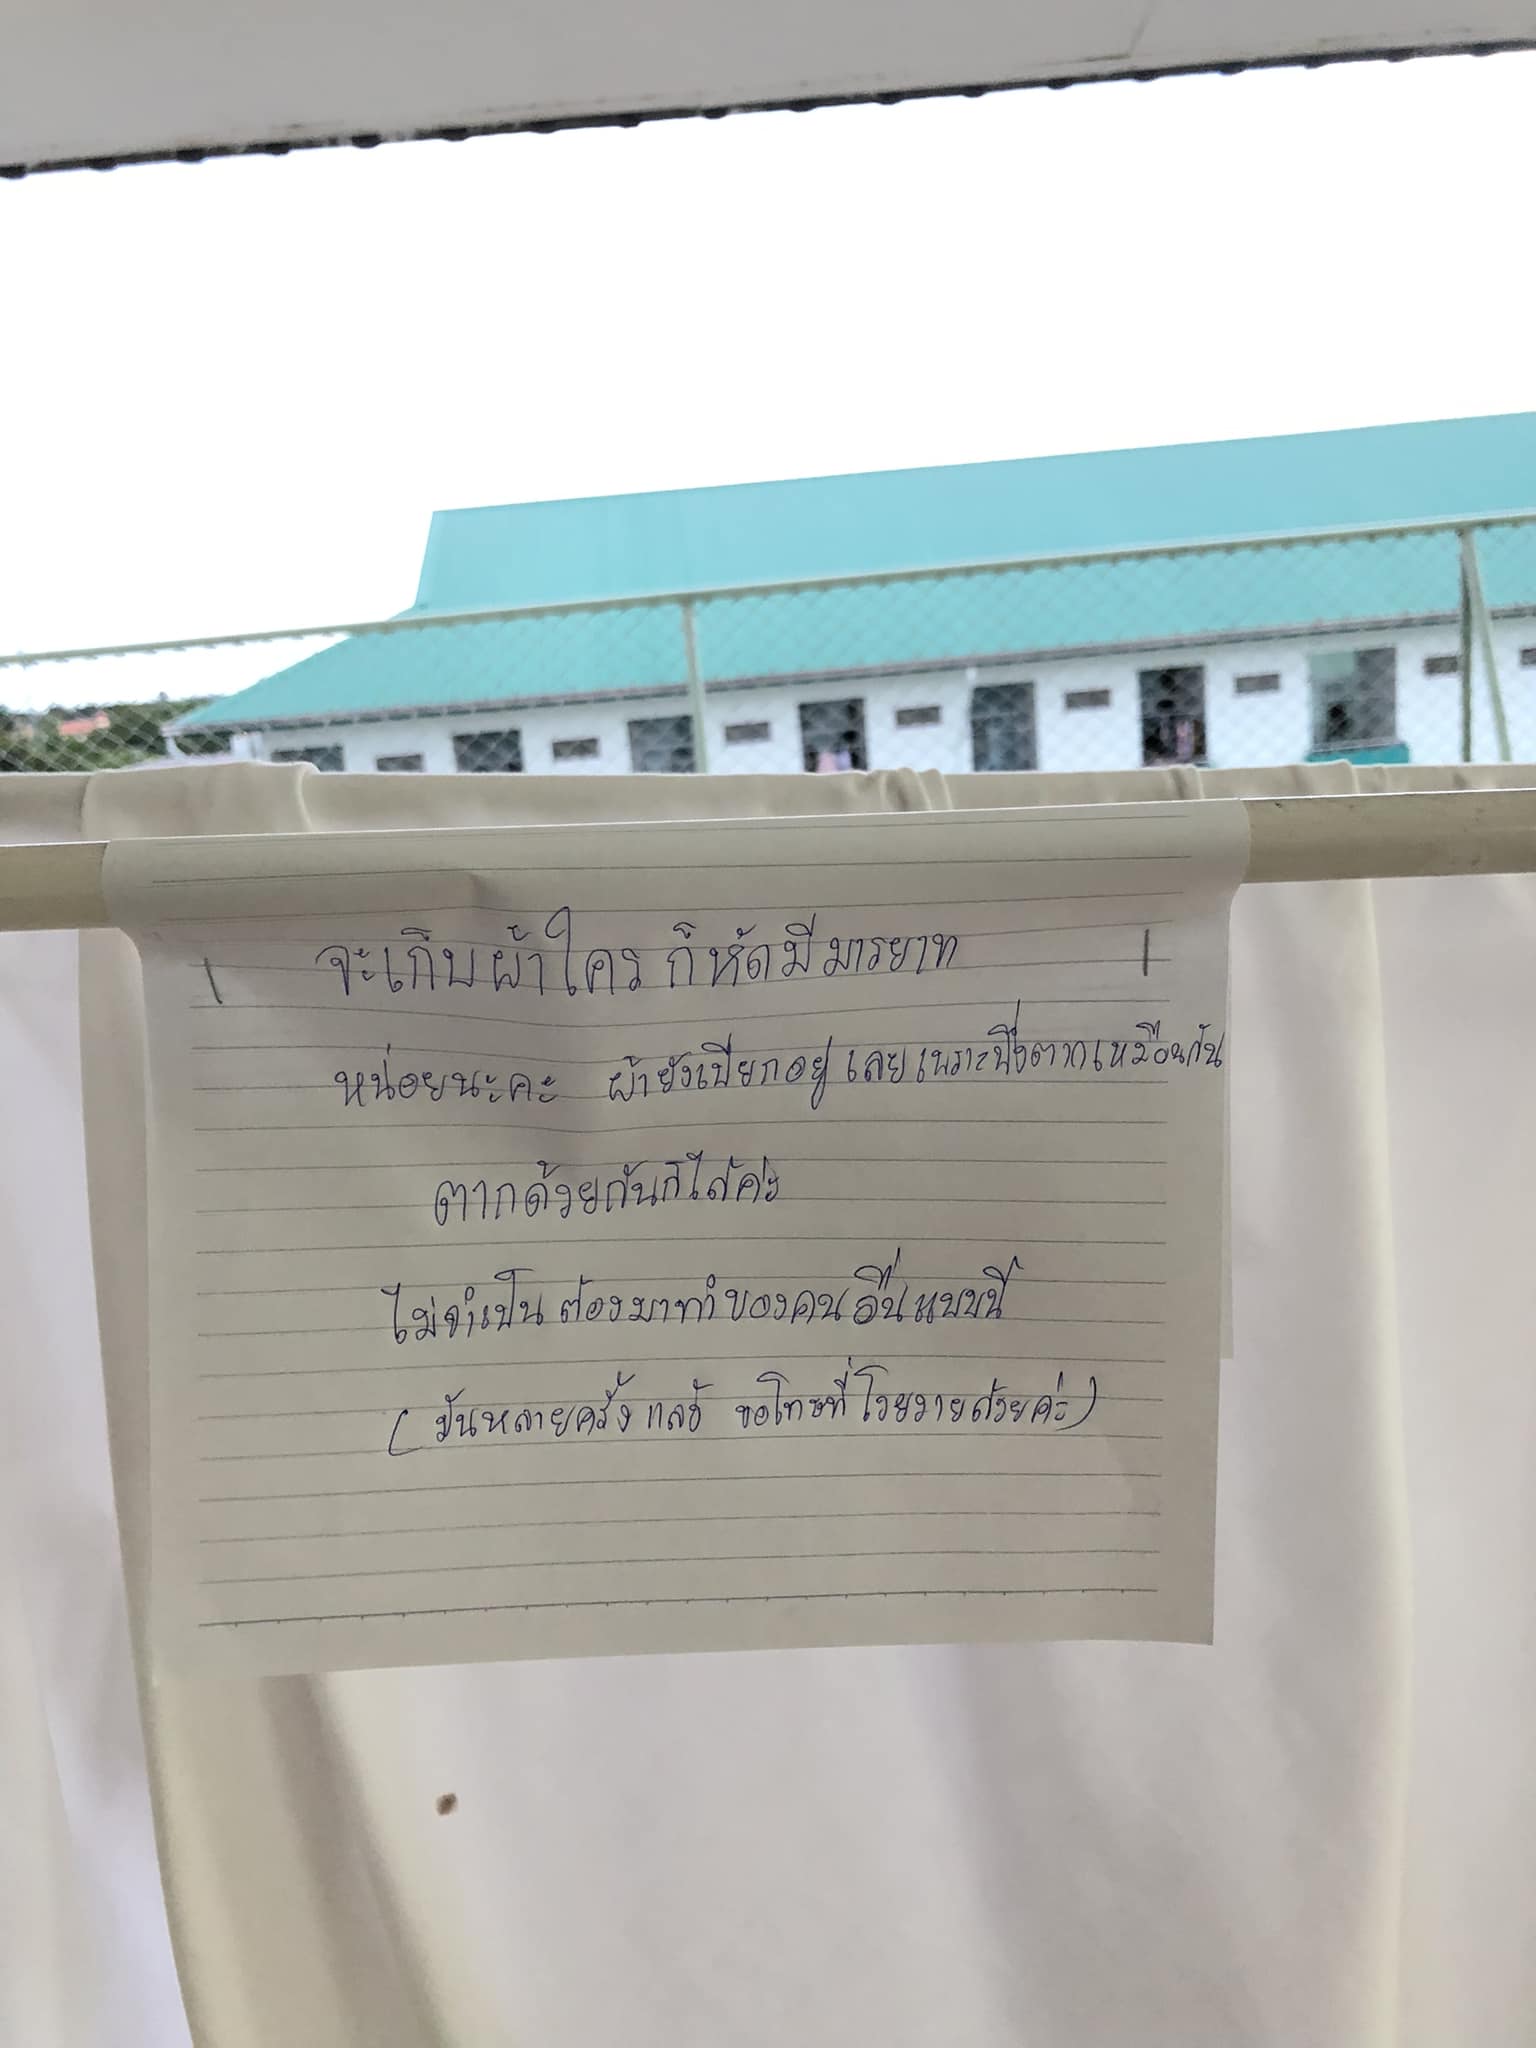 จะเก็บผ้าใคร ก็หัดมีมารยาท
หน่อยนะคะ ผ้ายังเปียกอยู่ เลย เพราะพึ่งตากเหมือนกัน
ตากด้วยกันก็ได้ค่ะ
ไม่จำเป็น ต้องมาทำของคนอื่นแบบนี้
( มันหลายครั้ง แล้ว ขอโทษที่โวยวายด้วยค่ะ )